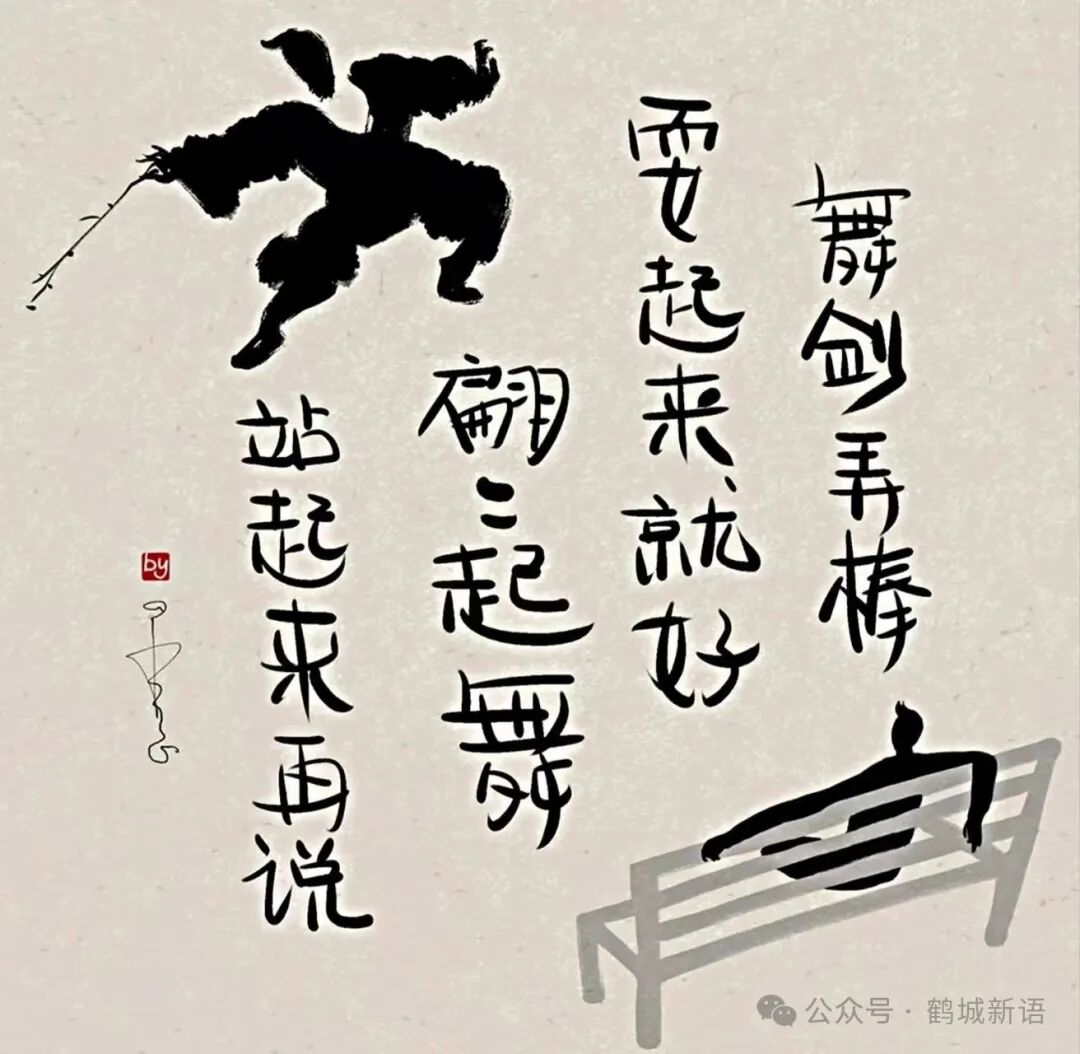 舞剑弄棒
耍起来就好
翩〻起舞
站起来再说
by
公众号 · 鹤城新语